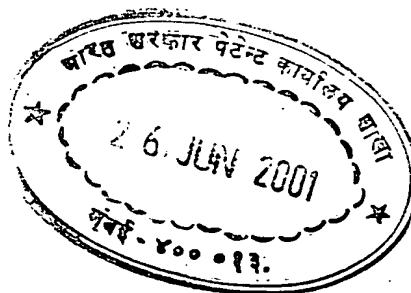 भारत सरकार पेटेन्ट कार्यालय शाखा
26 JUN 2001
मुंबई - ४०० ०१३.